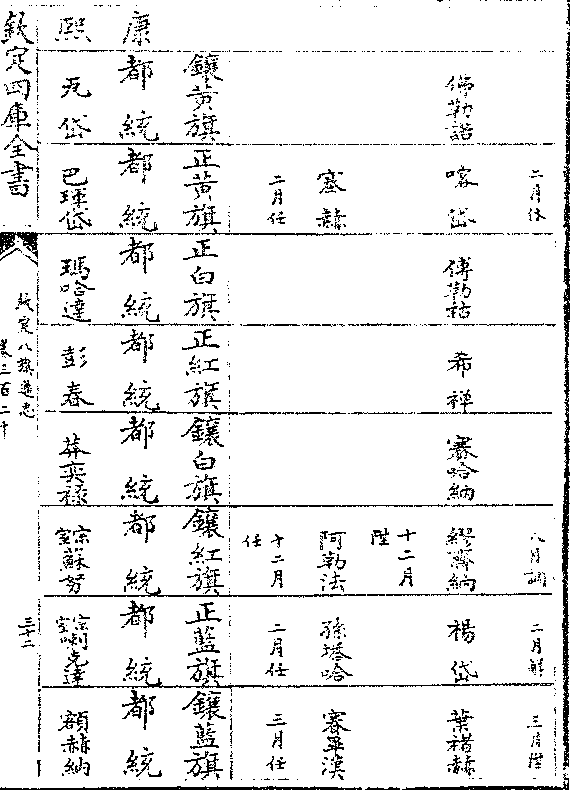 二月休
八月調
二月解
三月陞
喀岱
傅勒祜
賽哈納
繆齊納
楊岱
葉楮赫
十二月陞
塞赫
阿勒法
孫塔哈
二月任
十二月任
二月任
三月任
鑲黃旗
正黃旗
正白旗
正紅旗
鑲白旗
鑲紅旗
正藍旗
鑲藍旗
康
都統
都統
都統
都統
都統
都統
都統
都統
熙
尢岱
巴琿岱
瑪哈達
彭春
莽奕祿
宗室蘇努
宗室喇克達
額赫納
欽定四庫全書
欽定八旗通志
卷三百二十
三十二